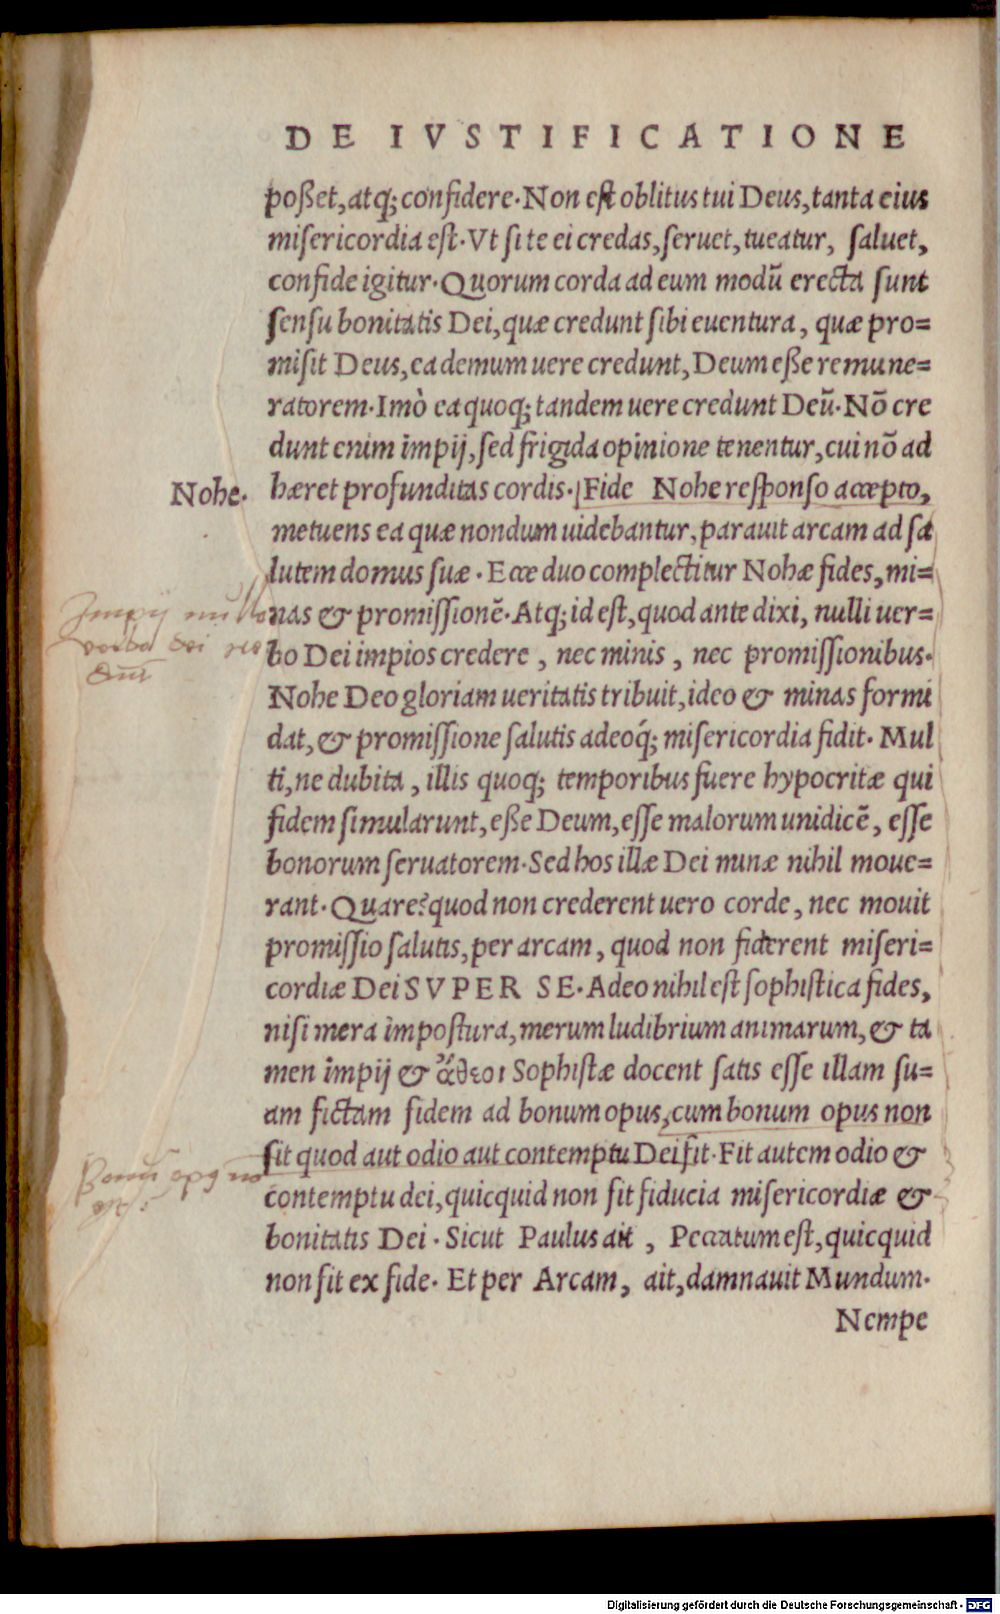 DE IVSTIFICATIONE
poßet, atq; confidere. Non est oblitus tui Deus, tanta eius
misericordia est. Vt si te ei credas, seruet, tueatur, saluet,
confide igitur. Quorum corda ad eum modū erecta sunt
sensu bonitatis Dei, quæ credunt sibi euentura, quæ pro=
misit Deus, ea demum uere credunt, Deum eße remune=
ratorem. Imò ea quoq; tandem uere credunt Deū. Nō cre
dunt enim impij, sed frigida opinione tenentur, cui nō ad
Nohe.
hæret profunditas cordis. Fide Nohe responso accepto,
metuens ea quæ nondum uidebantur, parauit arcam ad sa
lutem domus suæ. Ecce duo complectitur Nohæ fides, mi=
Impij nullo
nas & promissionē. Atq; id est, quod ante dixi, nulli uer=
verbo dei
bo Dei impios credere, nec minis, nec promissionibus.
Nohe Deo gloriam ueritatis tribuit, ideo & minas formi
dat, & promissione salutis adeoq́; misericordia fidit. Mul
ti, ne dubita, illis quoq; temporibus fuere hypocritæ qui
fidem simularunt, eße Deum, esse malorum uindicē, esse
bonorum seruatorem. Sed hos illæ Dei minæ nihil moue=
rant. Quare? quod non crederent uero corde, nec mouit
promissio salutis, per arcam, quod non fiderent miseri=
cordiæ Dei SVPER SE. Adeo nihil est sophistica fides,
nisi mera impostura, merum ludibrium animarum, & ta
men impij & ἄθεοι Sophistæ docent satis esse illam su=
am fictam fidem ad bonum opus, cum bonum opus non
sit quod aut odio aut contemptu Dei fit. Fit autem odio &
Bonū opus
contemptu dei, quicquid non fit fiducia misericordiæ &
bonitatis Dei. Sicut Paulus ait, Peccatum est, quicquid
non fit ex fide. Et per Arcam, ait, damnauit Mundum.
Nempe
Digitalisierung gefördert durch die Deutsche Forschungsgemeinschaft - DFG